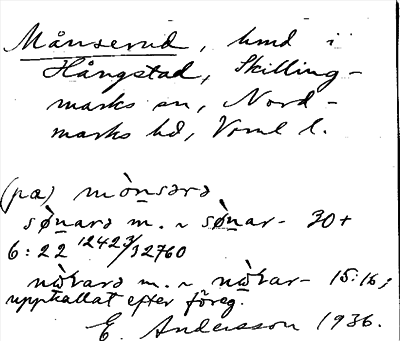 Månserud, hmd i
Hångstad, Skilling-
marks sn, Nord-
marks hd, Vrml l.
(pα) mò̱nsərə
sø̀narə m. ~ sø̀nar- 30+
6:22 12423/32760
nò̱rarə m. ~ nò̱rar- 15:16;
uppkallat efter föreg.
E. Andersson 1936.